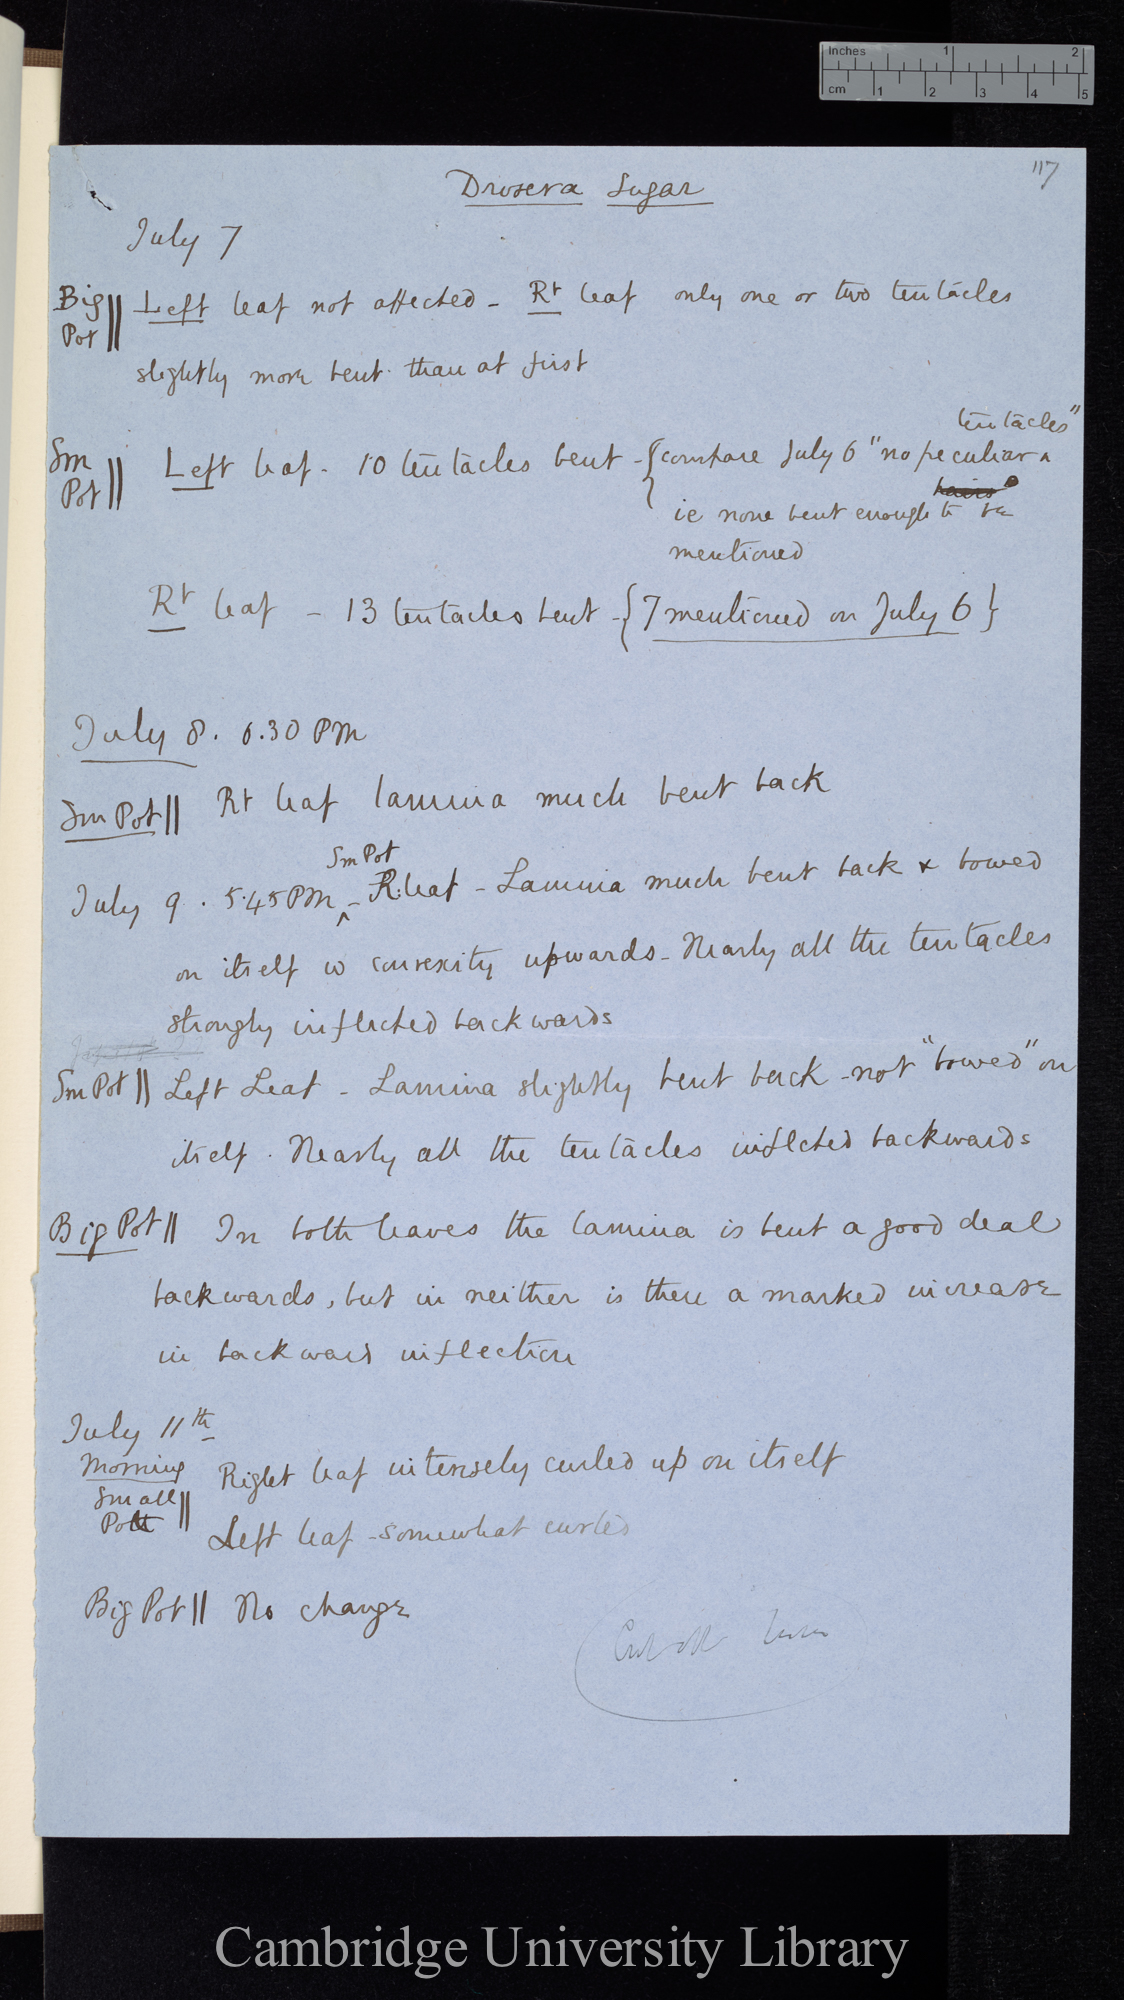 Inches 1 2
cm 1 2 3 4 5
117
Drosera Sugar
July 7
Big Pot || Left leaf not affected - Rt leaf only one or two tentacles
slightly more bent than at first
tentacles"
Sm Pot || Left leaf - 10 tentacles bent - { compare July 6 "no peculiar ^
hairs"
ie none bent enough to be
mentioned
Rt leaf - 13 tentacles bent - {7 mentioned on July 6}
July 8. 6.30 PM
Sm Pot || Rt leaf lamina much bent back
Sm Pot
July 9. 5.45 PM ^ - R. leaf - Lamina much bent back & bowed
on itself w convexity upwards - Nearly all the tentacles
strongly inflected backwards
Sm Pot || Left Leaf - Lamina slightly bent back - not "bowed" on
itself. Nearly all the tentacles inflcted backwards
Big Pot || In both leaves the lamina is bent a good deal
backwards, but in neither is there a marked increase
in backward inflection
July 11th
Morning
Small Pot || Right leaf intensely curled up on itself
Left leaf - somewhat curled
Big Pot || No change
Cambridge University Library